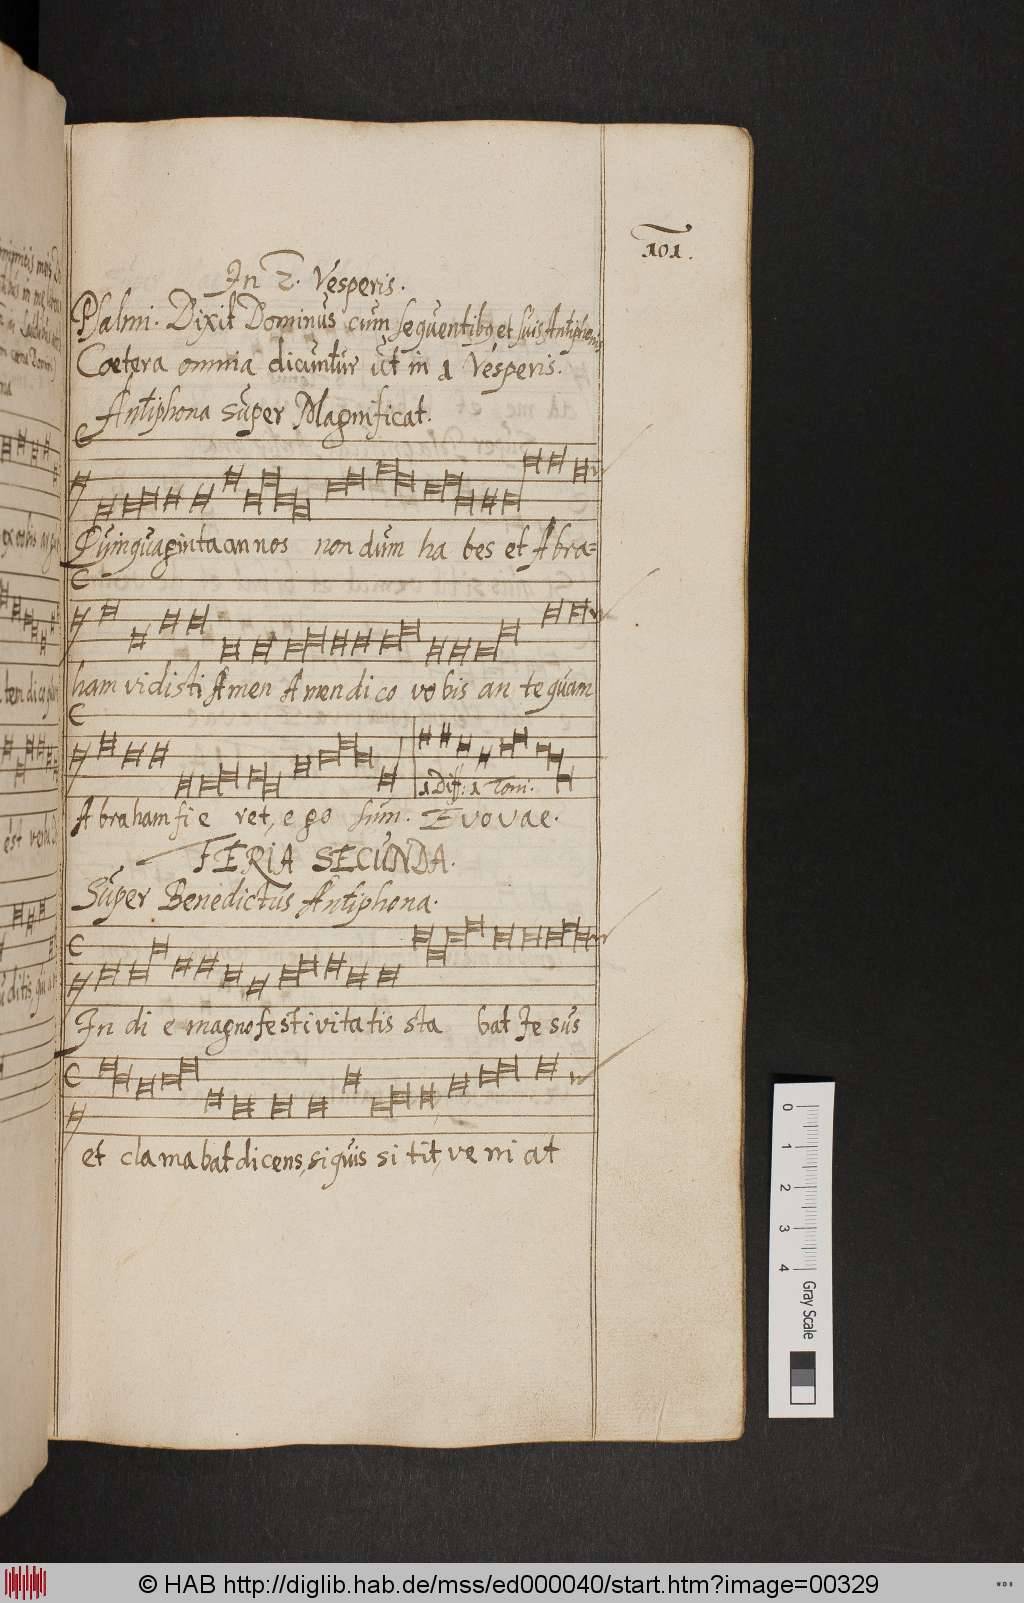 101.
In 2. Vesperis.
Psalmi. Dixit Dominus cum sequentibq et suis Antiphonis
Cœtera omnia dicuntur ut in 1 Vesperis.
Antiphona super Magnificat.
Quinquaginta annos non dum ha bes et Abra=
ham vidisti Amen Amen di co vo bis an te quam
Abraham fi e ret, e go sum. Evovae.
1 Diff: 1 Toni.
FERIA SECUNDA.
Super Benedictus Antiphona.
In di e magno festivitatis sta bat Je sus
et clamabat dicens, siquis si tit, ve ni at
0 1 2 3 4 Gray Scale
© HAB http://diglib.hab.de/mss/ed000040/start.htm?image=00329